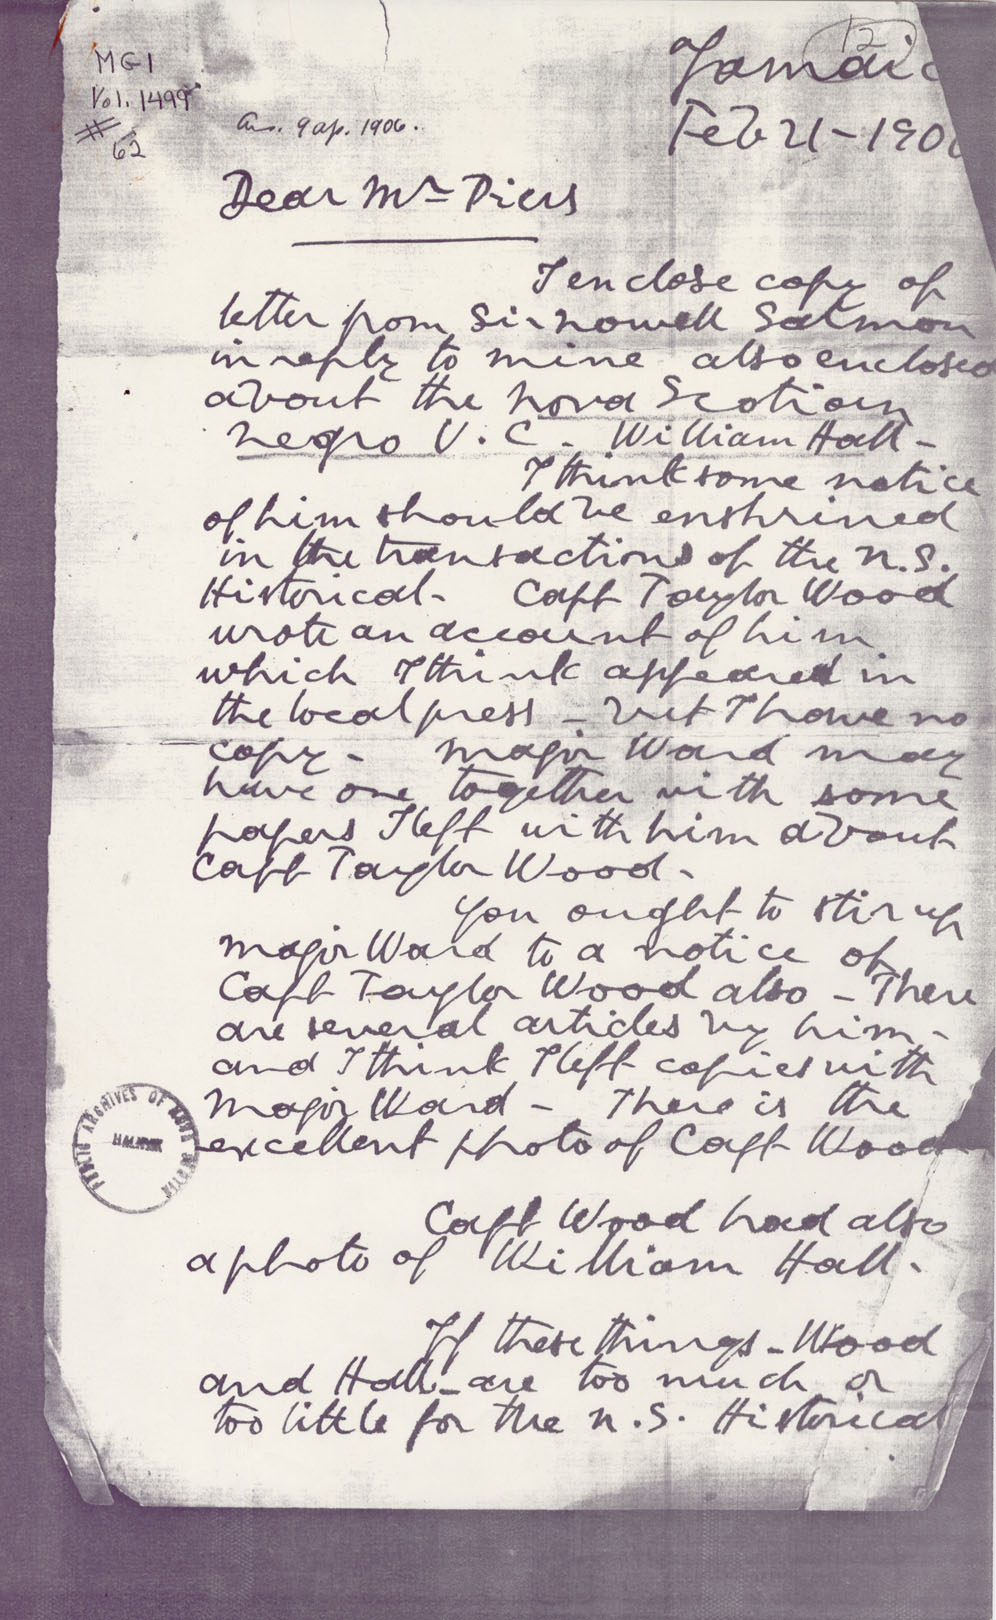 12
MG1
Vol. 1499
# 62
Jamaic
Feb 21 - 190
Ans. 9 Ap. 1906.
Dear Mr Piers
I enclose copy of
letter from Sir Nowell Salmon
in reply to mine also enclosed
about the Nova Scotian
negro V.C. William Hall -
I think some notice
of him should be enshrined
in the transactions of the N.S.
Historical - Capt Taylor Wood
wrote an account of him
which I think appeared in
the local press - but I have no
copy - Major Ward may
have one together with some
papers I left with him about
Capt Taylor Wood -
You ought to stir up
Major Ward to a notice of
Capt Taylor Wood also - There
are several articles by him -
and I think I left copies with
Major Ward - There is the
excellent photo of Capt Wood
PUBLIC ARCHIVES OF NOVA SCOTIA
HALIFAX
Capt Wood had also
a photo of William Hall -
If these things - Wood
and Hall - are too much or
too little for the N.S. Historical